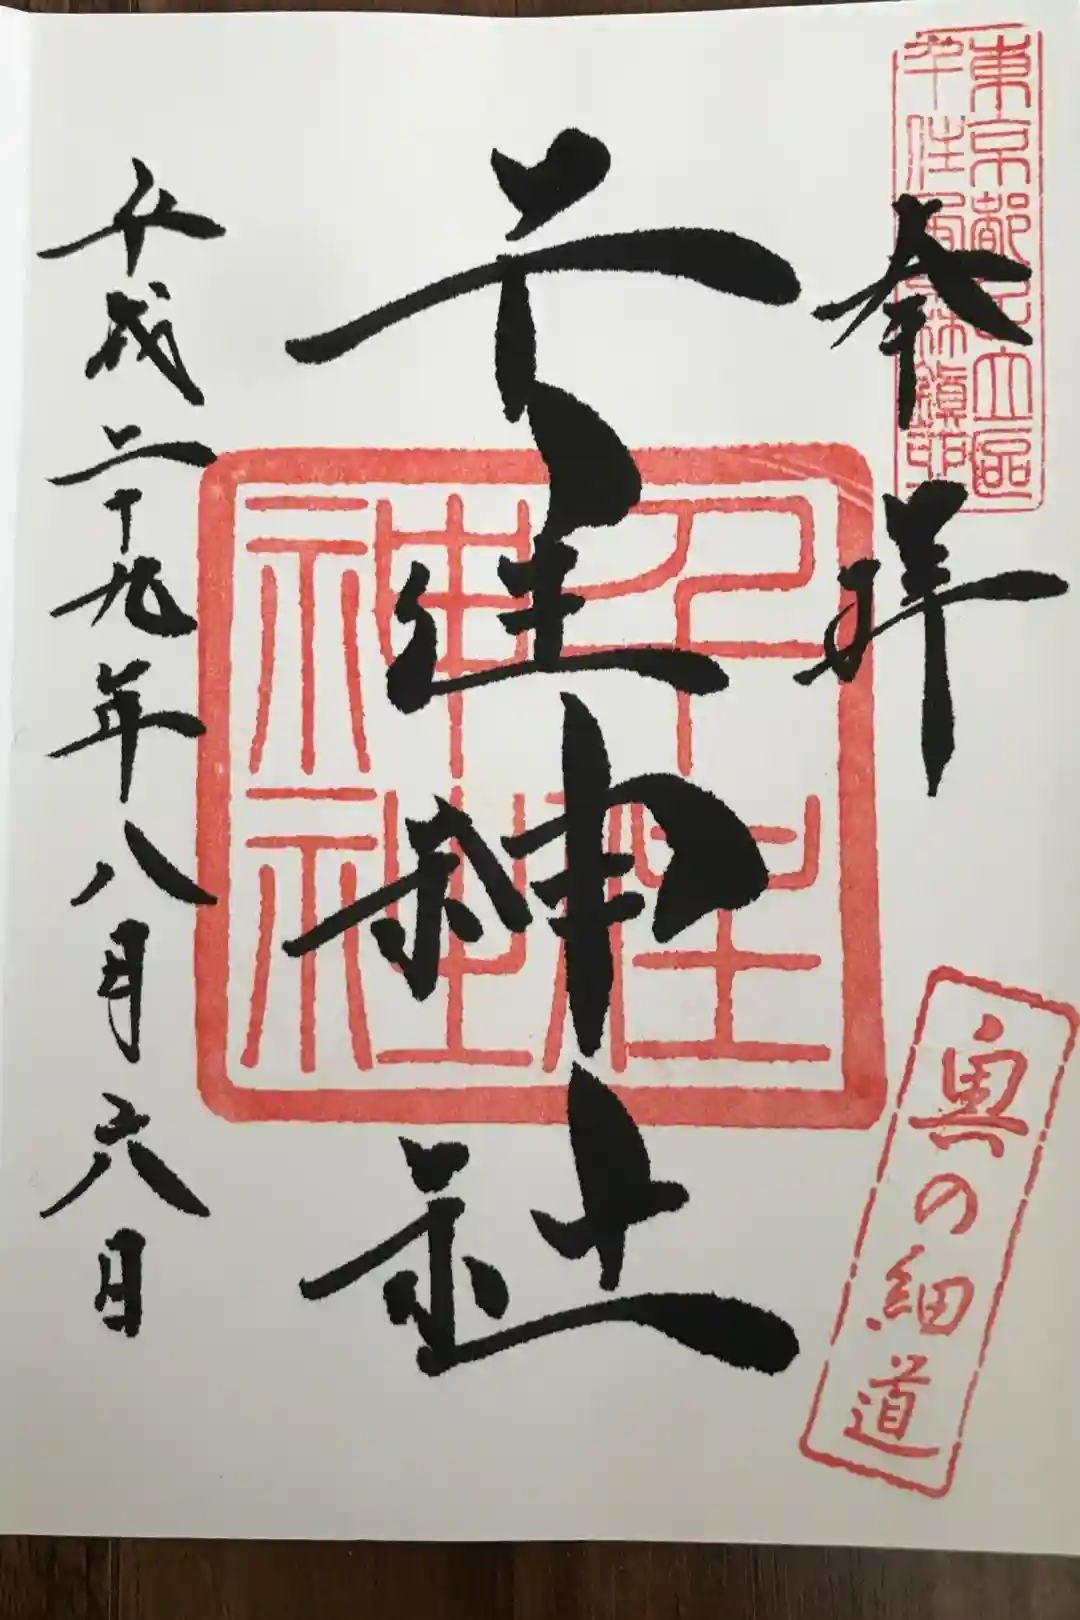 東京都足立區
千住宿
鎮守
奉拝
千住神社
千住
神社
平成二十九年八月六日
奥の細道